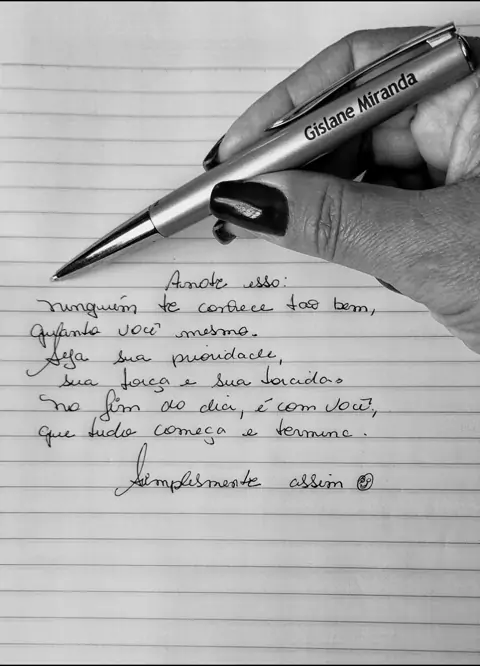 Gislane Miranda
Anote isso:
ninguém te conhece tão bem,
quanto você mesmo.
Seja sua prioridade,
sua força e sua torcida.
No fim do dia, é com você,
que tudo começa e termina.
Simplesmente assim